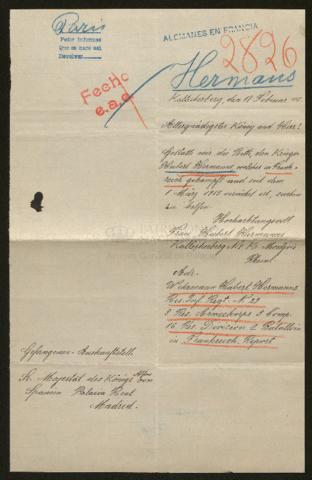 Paris
Pedir informes
Que se haga así
Devolver
ALEMANES EN FRANCIA
2826
Fecho
e.a.d.
Hermans
Kalterherberg, den 11 Februar
Allergnädigster König und Herr!
Gestatte mir die Bitte, den Krieger
Hubert Hermanns, welcher in Frank-
reich gekämpft und seit dem
März 1915 vermißt ist, suchen
zu helfen.
Hochachtungsvoll
Frau Hubert Hermanns
Kalterherberg Kr. Montjoie
Rheinl.
Adr.
Wehrmann Hubert Hermanns
Res. Inf. Regt. No 29
8 Res. Armeekorps 5 Comp.
16 Res. Division 2 Bataillon
in Frankreich.
Gefangenen-Auskunftstell.
Sr. Majestät des Königs Alfons von
Spanien Palacio Real
Madrid.